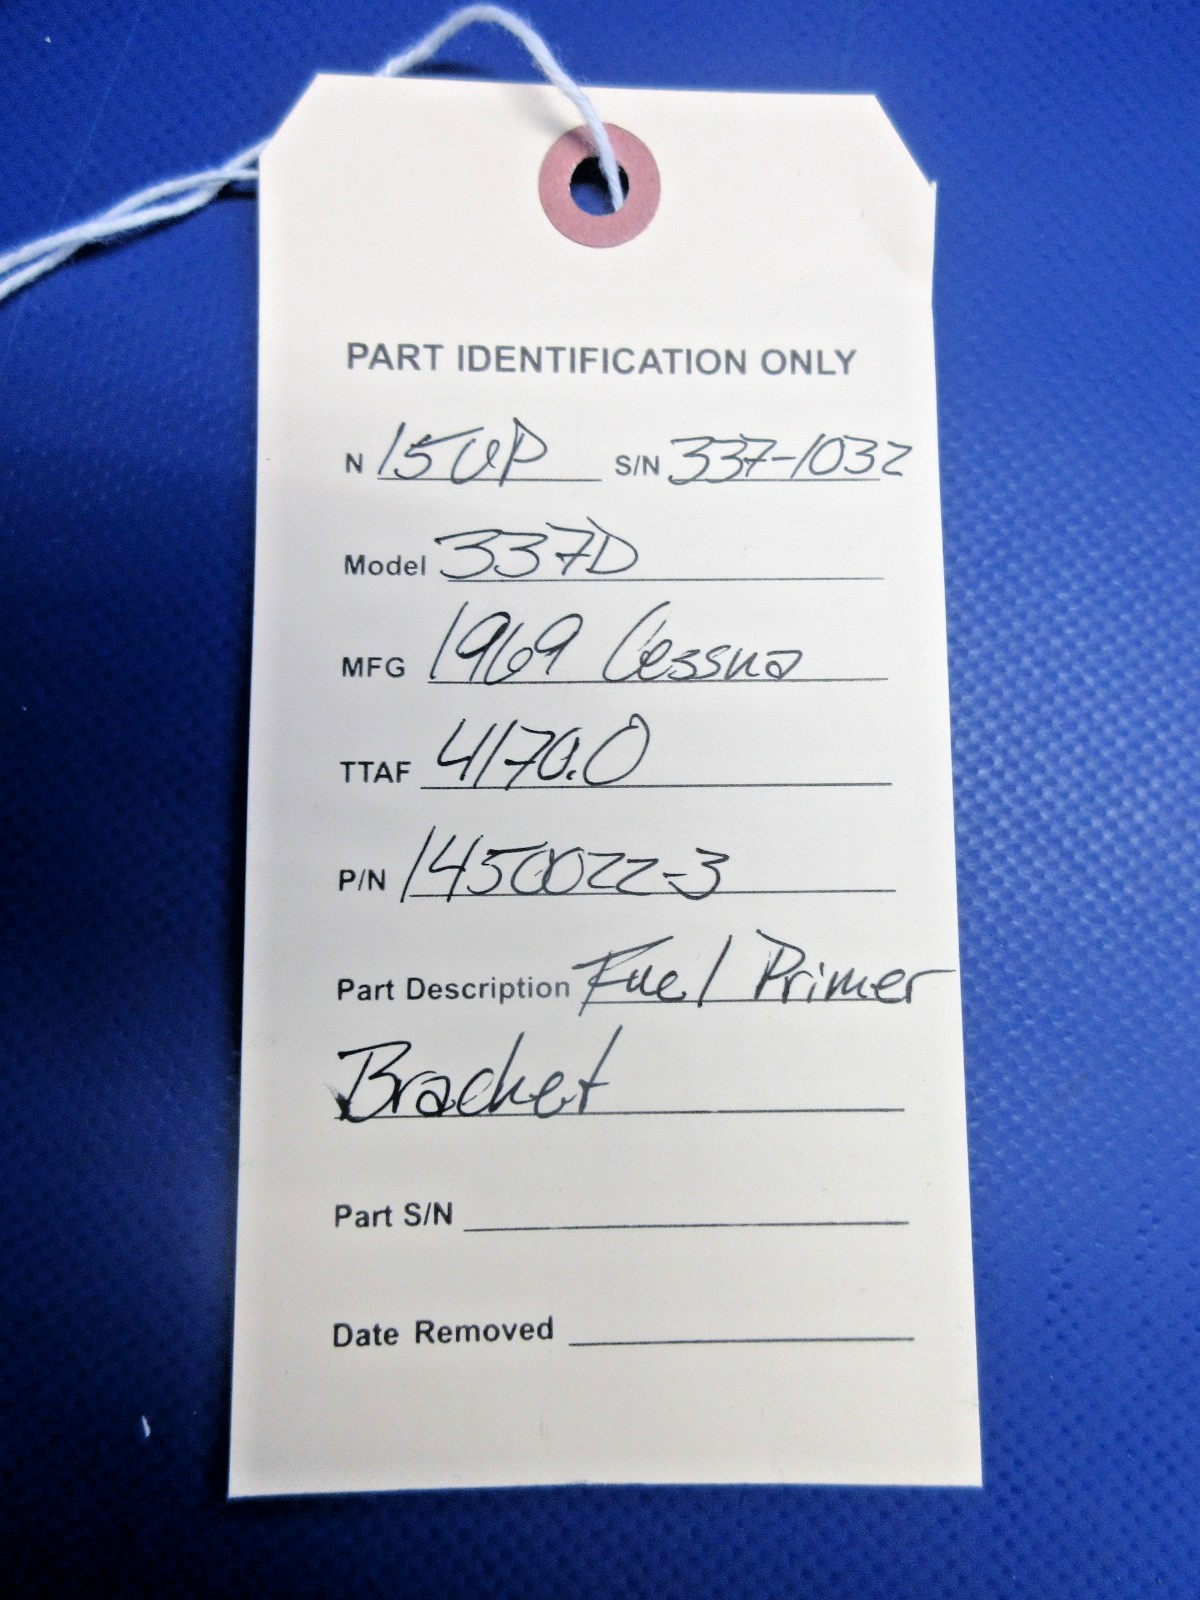 PART IDENTIFICATION ONLY
N 150P S/N 337-1032
Model 337D
MFG 1969 Cessna
TTAF 4170.0
P/N 1450022-3
Part Description Fuel Primer
Bracket
Part S/N
Date Removed